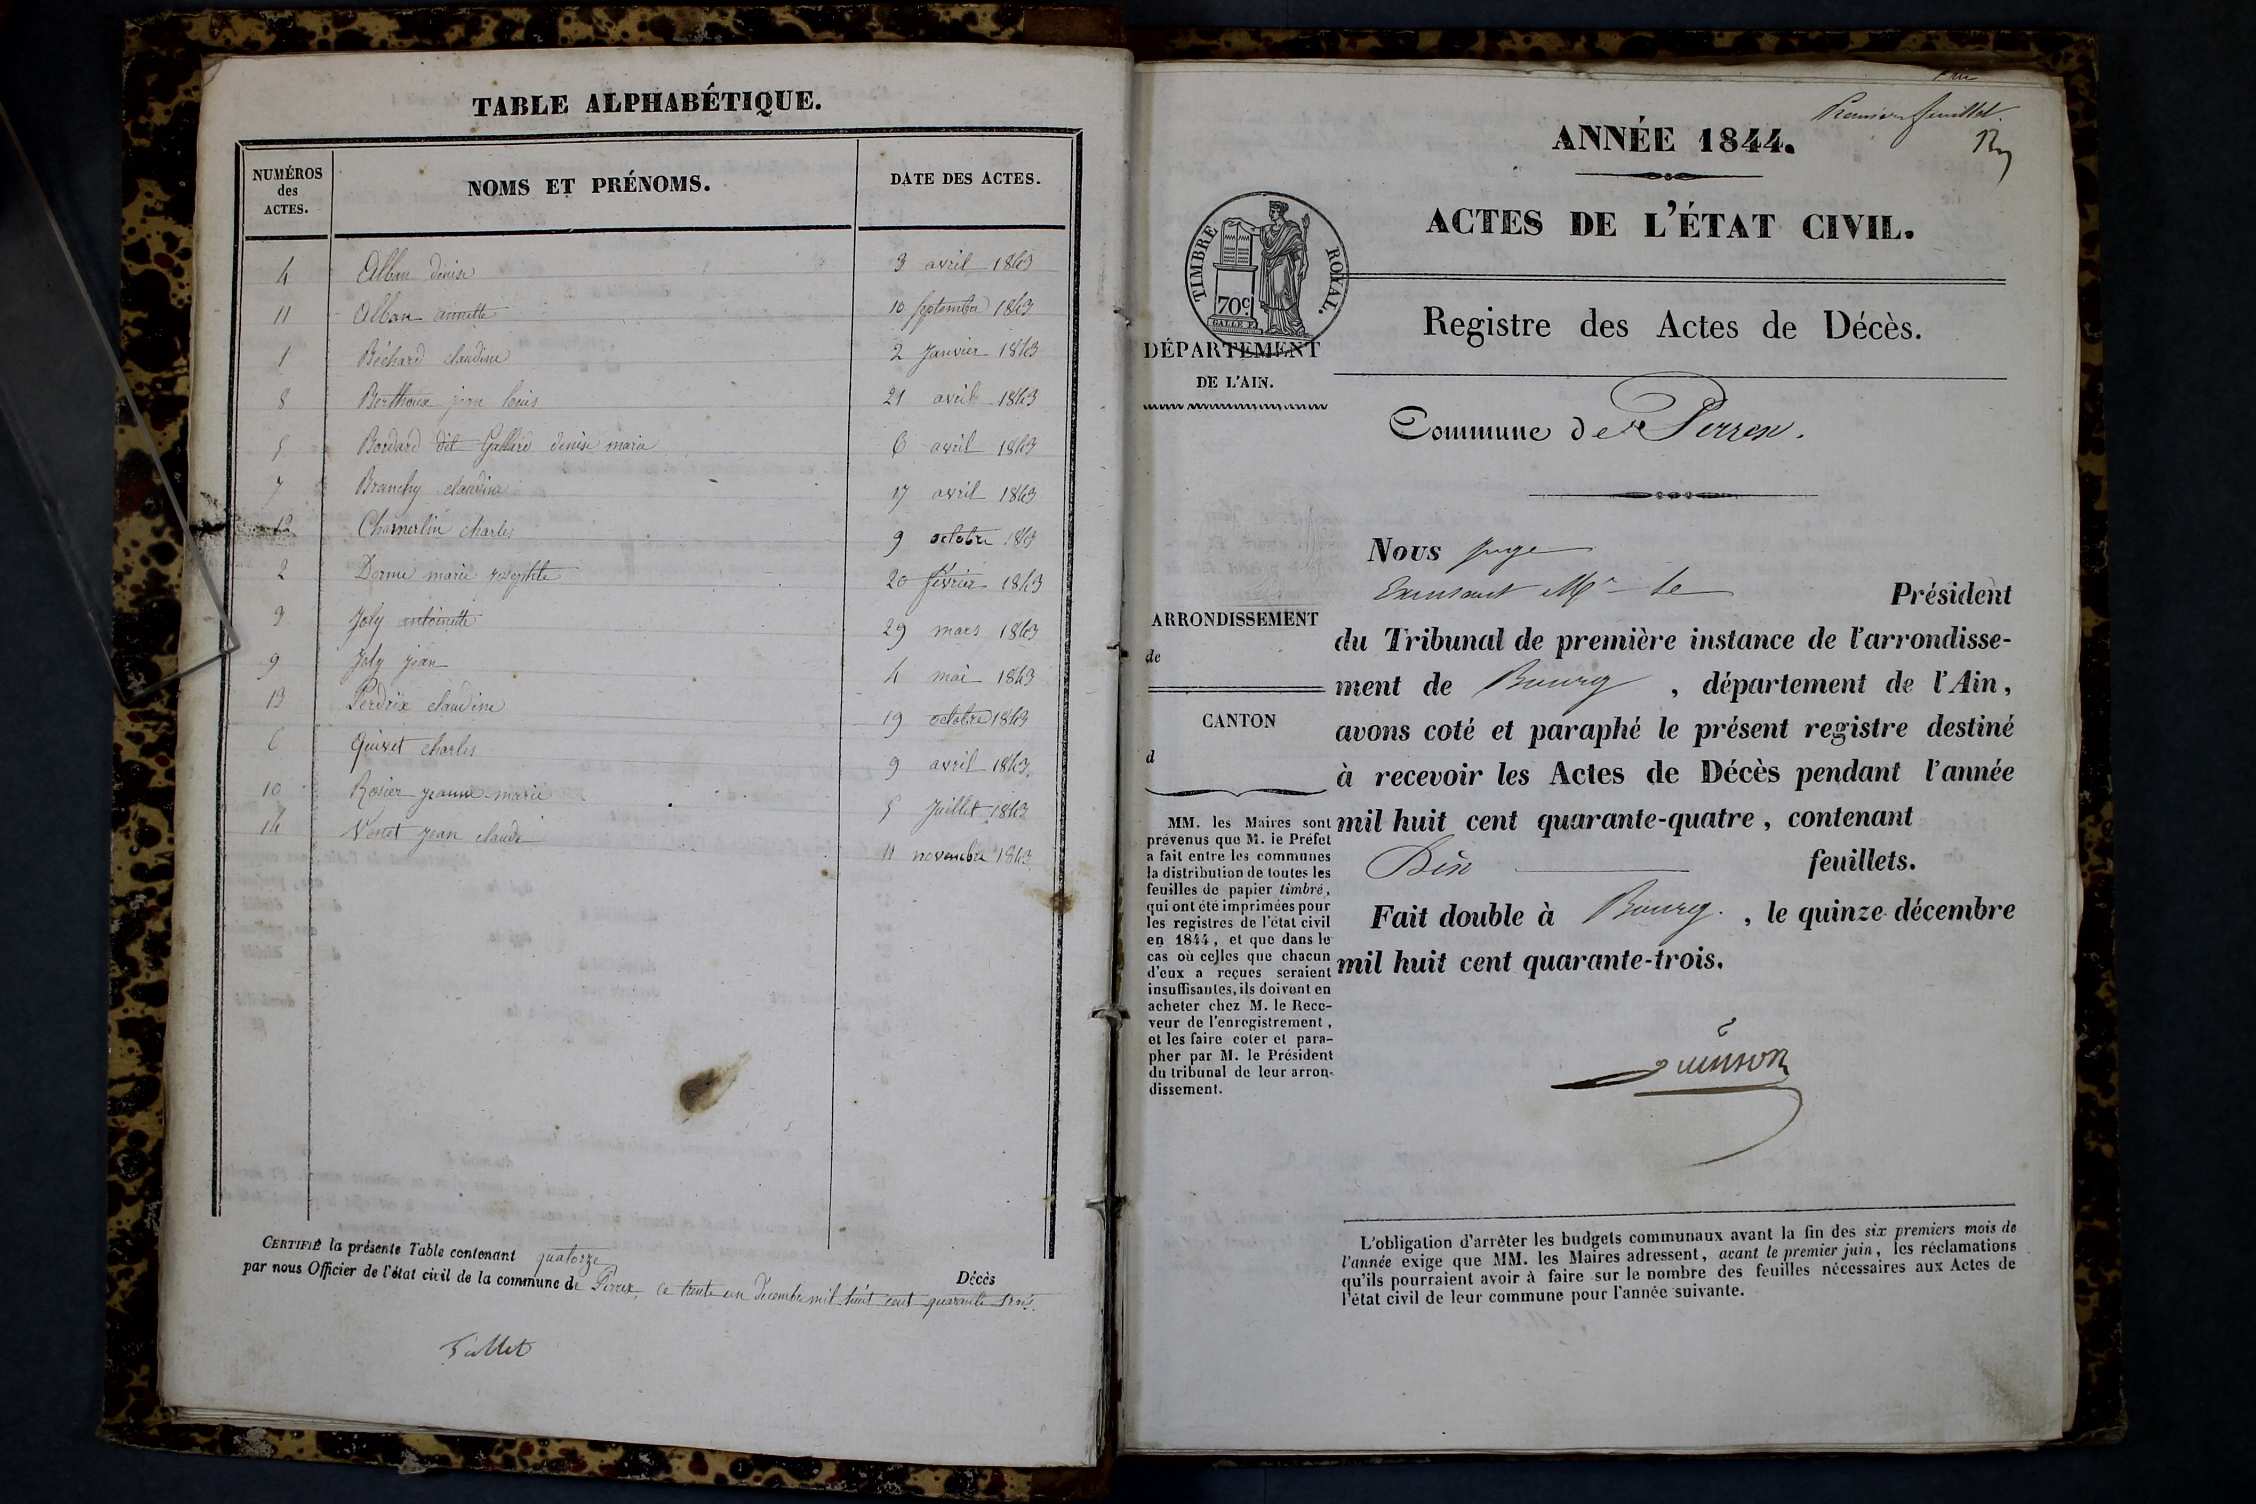 TABLE ALPHABÉTIQUE.
NUMÉROS des ACTES. NOMS ET PRÉNOMS. DATE DES ACTES.
4 Alban denise 3 avril 1843
11 Alban annette 10 septembre 1843
1 Béchard claudine 2 janvier 1843
8 Berthoux jean louis 21 avril 1843
5 Bordard dit Gallard denise marie 6 avril 1843
7 Branchy claudine 17 avril 1843
12 Chamerlin charles 9 octobre 1843
2 Dorme marie josephte 20 février 1843
3 Joly antoinette 29 mars 1843
9 Joly jean 4 mai 1843
13 Perdrix claudine 19 octobre 1843
6 Quivet charles 9 avril 1843.
10 Rosier jeanne marie 5 juillet 1843
14 Vernet jean claude 11 novembre 1843
CERTIFIÉ la présente Table contenant quatorze Décès
par nous Officier de l'état civil de la commune de Perrex, ce trente un décembre mil huit cent quarante trois.
Premier feuillet.
ANNÉE 1844.
ACTES DE L'ÉTAT CIVIL.
TIMBRE ROYAL.
70c
GALLE F.
Registre des Actes de Décès.
DÉPARTEMENT
DE L'AIN.
Commune de Perrex.
Nous juge
Excusant Mr le Président
du Tribunal de première instance de l'arrondisse-
ment de Bourg, département de l'Ain,
avons coté et paraphé le présent registre destiné
à recevoir les Actes de Décès pendant l'année
mil huit cent quarante-quatre, contenant
Dix feuillets.
Fait double à Bourg, le quinze décembre
mil huit cent quarante-trois.
ARRONDISSEMENT
de
CANTON
d
MM. les Maires sont
prévenus que M. le Préfet
a fait entre les communes
la distribution de toutes les
feuilles de papier timbré,
qui ont été imprimées pour
les registres de l'état civil
en 1844, et que dans le
cas où celles que chacun
d'eux a reçues seraient
insuffisantes, ils doivent en
acheter chez M. le Rece-
veur de l'enregistrement,
et les faire coter et para-
pher par M. le Président
du tribunal de leur arron-
dissement.
L'obligation d'arrêter les budgets communaux avant la fin des six premiers mois de
l'année exige que MM. les Maires adressent, avant le premier juin, les réclamations
qu'ils pourraient avoir à faire sur le nombre des feuilles nécessaires aux Actes de
l'état civil de leur commune pour l'année suivante.